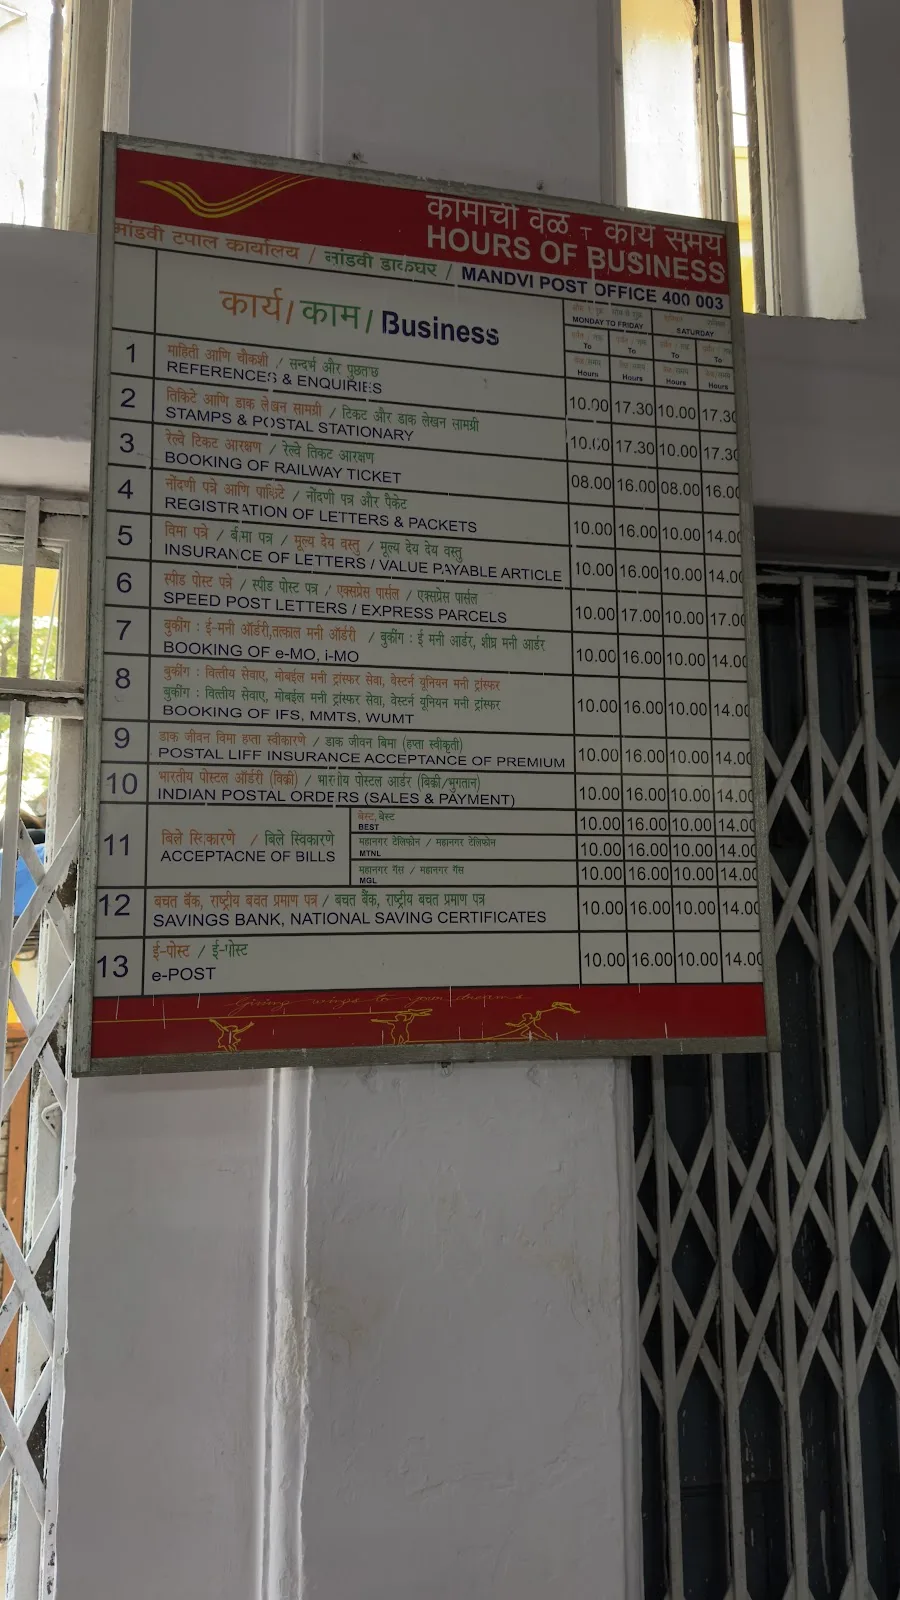 कामाची वेळ - कार्य समय
HOURS OF BUSINESS
मांडवी टपाल कार्यालय / मांडवी डाकघर / MANDVI POST OFFICE 400 003
कार्य / काम / Business
MONDAY TO FRIDAY SATURDAY
To To To To
Hours Hours Hours Hours
1 माहिती आणि चौकशी / सन्दर्भ और पूछताछ
REFERENCES & ENQUIRIES 10.00 17.30 10.00 17.30
2 तिकिटे आणि डाक लेखन सामग्री / टिकट और डाक लेखन सामग्री
STAMPS & POSTAL STATIONARY 10.00 17.30 10.00 17.30
3 रेल्वे टिकट आरक्षण / रेल्वे तिकट आरक्षण
BOOKING OF RAILWAY TICKET 08.00 16.00 08.00 16.00
4 नोंदणी पत्रे आणि पाकिटे / नोंदणी पत्र और पैकेट
REGISTRATION OF LETTERS & PACKETS 10.00 16.00 10.00 14.00
5 विमा पत्रे / बीमा पत्र / मूल्य देय वस्तु / मूल्य देय देय वस्तु
INSURANCE OF LETTERS / VALUE PAYABLE ARTICLE 10.00 16.00 10.00 14.00
6 स्पीड पोस्ट पत्रे / स्पीड पोस्ट पत्र / एक्सप्रेस पार्सल / एक्सप्रेस पार्सल
SPEED POST LETTERS / EXPRESS PARCELS 10.00 17.00 10.00 17.00
7 बुकींग : ई-मनी ऑर्डरी,तत्काल मनी ऑर्डरी / बुकींग : ई मनी आर्डर, शीघ्र मनी आर्डर
BOOKING OF e-MO, i-MO 10.00 16.00 10.00 14.00
8 बुकींग : वित्तीय सेवाए, मोबाईल मनी ट्रांस्फर सेवा, वेस्टर्न यूनियन मनी ट्रांस्फर
बुकींग : वित्तीय सेवाए, मोबईल मनी ट्रांस्फर सेवा, वेस्टर्न यूनियन मनी ट्रांस्फर
BOOKING OF IFS, MMTS, WUMT 10.00 16.00 10.00 14.00
9 डाक जीवन विमा हप्ता स्वीकारणे / डाक जीवन बिमा (हप्ता स्वीकृती)
POSTAL LIFF INSURANCE ACCEPTANCE OF PREMIUM 10.00 16.00 10.00 14.00
10 भारतीय पोस्टल ऑर्डरी (विक्री) / भारतीय पोस्टल आर्डर (बिक्री/भुगतान)
INDIAN POSTAL ORDERS (SALES & PAYMENT) 10.00 16.00 10.00 14.00
11 बिले स्विकारणे / बिले स्विकारणे
ACCEPTACNE OF BILLS
बेस्ट, बेस्ट
BEST 10.00 16.00 10.00 14.00
महानगर टेलिफोन / महानगर टेलिफोन
MTNL 10.00 16.00 10.00 14.00
महानगर गॅस / महानगर गॅस
MGL 10.00 16.00 10.00 14.00
12 बचत बॅक, राष्ट्रीय बचत प्रमाण पत्र / बचत बैंक, राष्ट्रीय बचत प्रमाण पत्र
SAVINGS BANK, NATIONAL SAVING CERTIFICATES 10.00 16.00 10.00 14.00
13 ई-पोस्ट / ई-पोस्ट
e-POST 10.00 16.00 10.00 14.00
Giving wings to your dreams